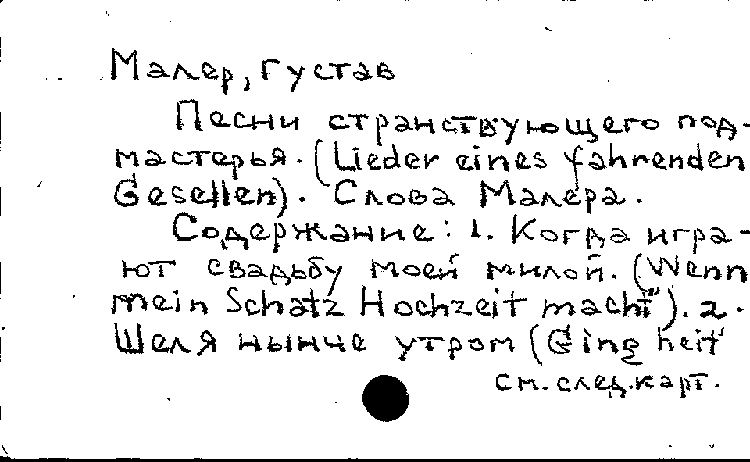 Малер, Густав
Песни странствующего под-
мастерья. (Lieder eines fahrenden
Gesellen). Слова Малера.
Содержание: 1. Когда игра-
ют свадьбу моей милой. (Wenn
mein Schatz Hochzeit macht"). 2.
Шел я нынче утром (Ging heit'
см. след. карт.